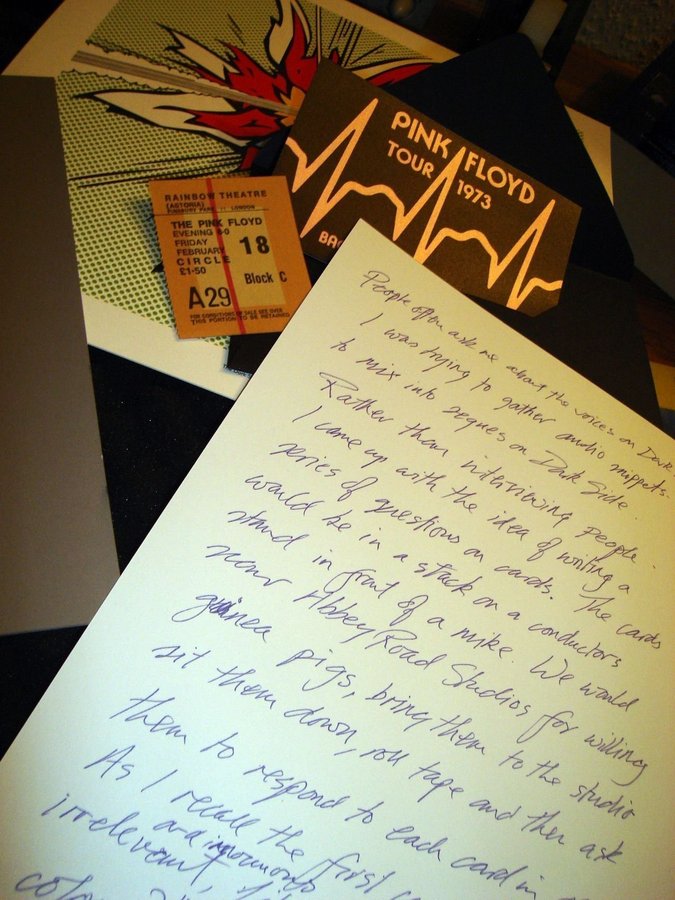 PINK FLOYD
TOUR 1973
BAC
RAINBOW THEATRE
(ASTORIA)
FINSBURY PARK LONDON
THE PINK FLOYD
EVENING
FRIDAY
FEBRUARY 18
CIRCLE
£1·50 Block C
A29
FOR CONDITIONS OF SALE SEE OVER
THIS PORTION TO BE RETAINED
People often ask me about the voices on Dark
I was trying to gather audio snippets
to mix into segues on Dark Side.
Rather than interviewing people
I came up with the idea of writing a
series of questions on cards. The cards
would be in a stack on a conductors
stand in front of a mike. We would
Abbey Road Studios for willing
guinea pigs, bring them to the studio
sit them down, roll tape and then ask
them to respond to each card in
As I recall the first
and
irrelevant,